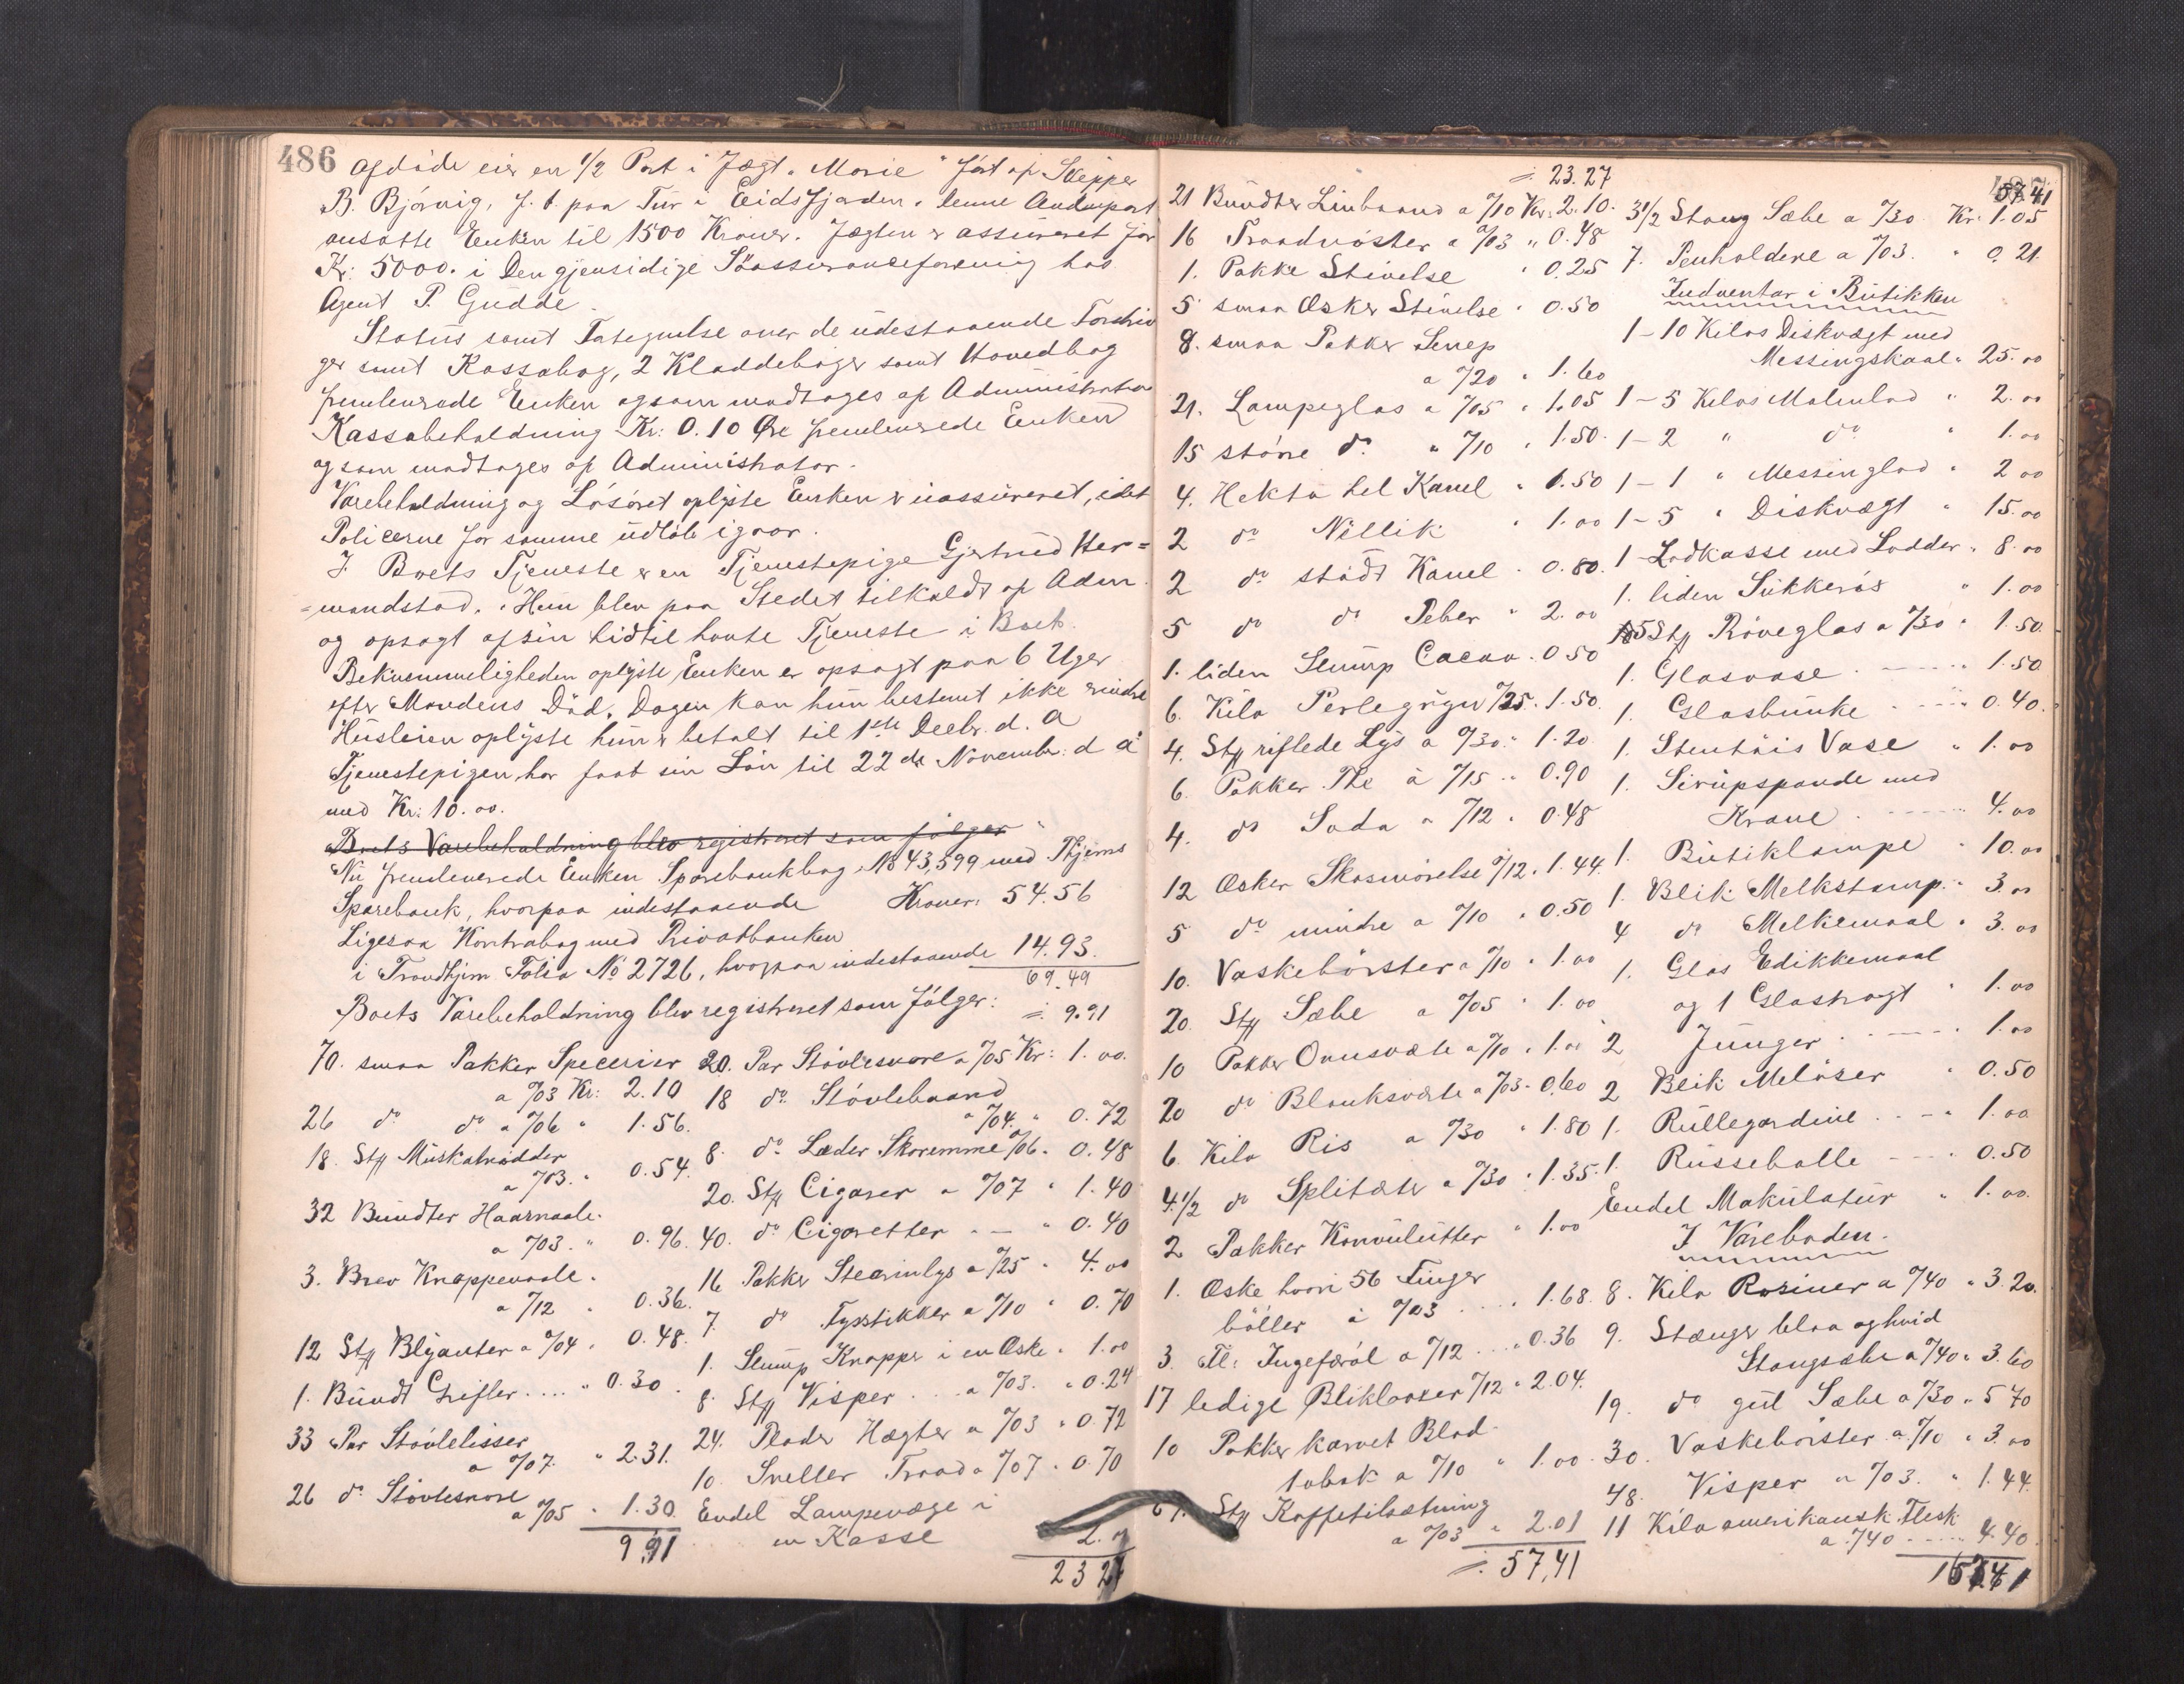 486
Afdøde eier en 1/2 Part i Jægt "Marie" ført af Skipper
B. Bjørvig, f. t. paa Tur i Eidsfjorden. Denne Andenpart
ansatte Enken til 1500 Kroner. Jægten er assureret for
Kr: 5000. i Den gjensidige Söassuranceforening hos
Agent P. Gudde.
Status samt Fategnelse over de udestaaende Fordrin
ger samt Kassabog, 2 Kladdebøger samt Hovedbog
fremleverede Enken og som modtoges af Administrator
Kassabeholdning Kr: 0.10 Øre fremleverede Enken
og som modtoges af Administrator.
Varebeholdning og Lösöret oplyste Enken er uassureret, idet
Policerne for samme udløb igaar.
I Boets Tjeneste er en Tjenestepige Gjertrud Her=
=mandstad. Hun blev paa Stedet tilkaldt af Adm.
og opsagt af sin hidtil havte Tjeneste i Boet.
Bekvemmeligheden oplyste Enken er opsagt paa 6 Uger
efter Mandens Död. Dagen kan hun bestemt ikke erindre
Husleien oplyste hun er betalt til 1ste Decbr. d. A
Tjenestepigen har faat sin Lön til 22de November d A
med Kr: 10.00.
Boets Varebeholdning blev registreret som følger
Nu fremleverede Enken Sparebankbog No 43,599 med Thjems
Sparebank, hvorpaa indestaaende Kroner: 54.56
Ligesaa Kontrabog med Privatbanken
i Trondhjem Folio No 2726, hvorpaa indestaaende 14.93.
69.49
Boets Varebeholdning blev registreret som følger:
70. smaa Pakker Specerier
a 0/03 Kr: 2.10
26 do do a 0/06 " 1.56.
18. Stk Muskatnødder
a 0/03. " 0.54.
32 Bundter Haarnaale.
a 0/03. " 0.96.
3. Brev Knappenaale.
a 0/12 " 0.36.
12 Stk Blyanter a 0/04 " 0.48.
1. Bundt Grifler.... " 0.30.
33 Par Støvlelisser
a 0/07. " 2.31.
26 do Støvlesnore
a 0/05 " 1.30.
9,91
9.91
20. Par Støvlesnore a 0/05 Kr: 1.00.
18 do Støvlebaand
a 0/04. " 0.72
8. do Læder Skoremme 0/06. 0.48
20. Stk Cigarer a 0/07 " 1.40
40. do Cigaretter " — " 0.40
16 Pakker Stearinlys a 0/25 " 4.00
7. do Fyrstikker a 0/10 " 0.70
1. Slump Knapper i en Æske " 1.00
8. Stk Visper ... a 0/03. " 0.24
24. Plader Hægter a 0/03 " 0.72
10. Sneller Traad a 0/07 " 0.70
Endel Lampevæge i
en Kasse 2.00
23 27
23.27
21 Bundter Linbaand a 0/10 Kr: 2.10.
16 Traadnøster a 0/03 " 0.48
1. Pakke Stivelse " 0.25
5 smaa Æsker Stivelse " 0.50
8. smaa Pakker Senep
a 0/20 " 1.60
21. Lampeglas a 0/05 " 1.05
15 større do " 0/10 " 1.50.
4. Hekto hel Kanel " 1.50
2 do Nellik " 1.00
2 do stødt Kanel " 0.80.
5 do do Peber " 2.00
1. liden Slump Cacao. 0 50
6. Kilo Perlegryn 0/25. 1.50.
4. Stk riflede Lys a 0/30. 1.20
6. Pakker The à 0/15 " 0.90
4. do Soda a 0/12 " 0.48
12 Æsker Skosmørelse 0/12 " 1.44.
5 do mindre a 0/10 " 0.50
10. Vaskebørster a 0/10 " 1.00
20. Stk Sæbe a 0/05 " 1.00
10 Pakker Ovnsværte a 0/10 " 1.00
20 do Blanksværte a 0/03. 0.60
6. Kilo Ris a 0/30 " 1.80
4 1/2 do Spliterter a 0/30 " 1.35.
2 Pakker Konvolutter " 1.00
1. Æske hvori 56 Finger
bøller à 0/03 .... 1.68.
3. Fl. Ingefærøl a 0/12 ... 0.36
17 ledige Blikbokser 0/12 " 2.04.
10 Pakker karvet Blad-
tobak a 0/10 " 1.00
67. Stk Kaffetilsætning
a 0/03 " 2.01
57,41
57.41
3 1/2 Stang Sæbe a 0/30. Kr: 1.05
7. Penholdere a 0/03. " 0.21.
Indventar i Butikken
1 – 10 Kilos Diskvægt med
Messingskaal " 25.00
1 – 5 Kilos Malmlod " 2.00
1 – 2 " do " 1.00
1 – 1 " Messinglod " 2 00
1 – 5 " Diskvægt " 15.00
1 – Lodkasse med Lodder " 8.00
1. liden Sukkerøs " 1.00
5 Stk Prøveglas a 0/30 " 1.50.
1. Glasvase . —— " 1.50
1. Glasbunke " —— " 0.40.
1. Stentøis Vase " 1.00
1. Sirupspande med
Krane . —— " 4.00
1. Butiklampe " 10.00
1. Blik Melkstamp " 3.00
4 do Melkemaal " 3.00
1. Glas Edikkemaal
og 1 Glastragt " 1.00
2 Junger . —— . 1.00
2 Blik Meløser " 0.50
1. Rullegardine . — " 1.00
1. Russebolle —— . 0.50
Endel Makulatur " 1.00.
I Vareboden.
8. Kilo Rosiner a 0/40 " 3.20.
9. Stænger blaa og hvid
Stangsæbe a 0/40 " 3.60
19. do gul Sæbe a 0/30 " 5 70
30. Vaskebørster a 0/10 " 3.00
48. Visper a 0/03. " 1.44.
11 Kilo amerikansk Flesk
a 0/40 ....... 4.40.